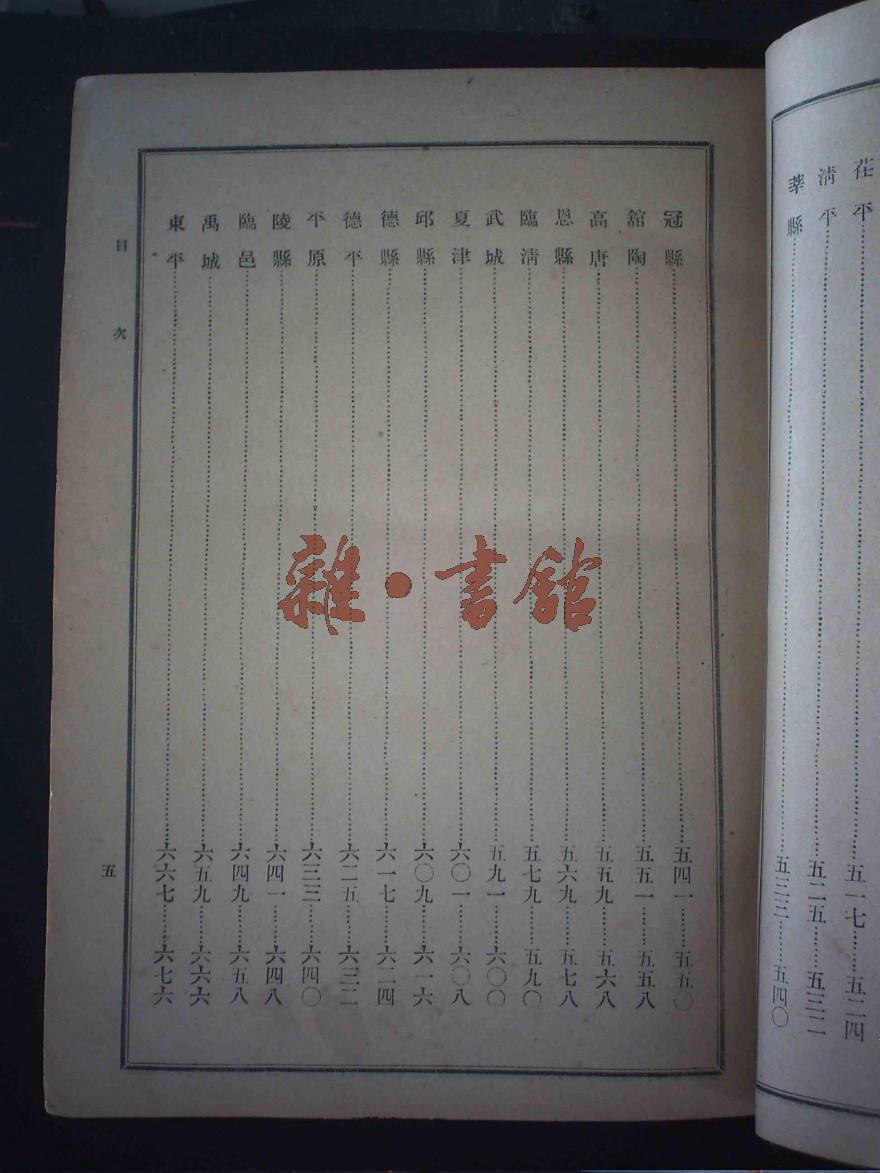 茌平……五一七……五二四
淸平……五二五……五三二
莘縣……五三三……五四〇
冠縣……五四一……五五〇
舘陶……五五一……五五八
高唐……五五九……五六八
恩縣……五六九……五七八
臨淸……五七九……五九〇
武城……五九一……六〇〇
夏津……六〇一……六〇八
邱縣……六〇九……六一六
德縣……六一七……六二四
德平……六二五……六三二
平原……六三三……六四〇
陵縣……六四一……六四八
臨邑……六四九……六五八
禹城……六五九……六六六
東平……六六七……六七六
目次
五
雜·書館